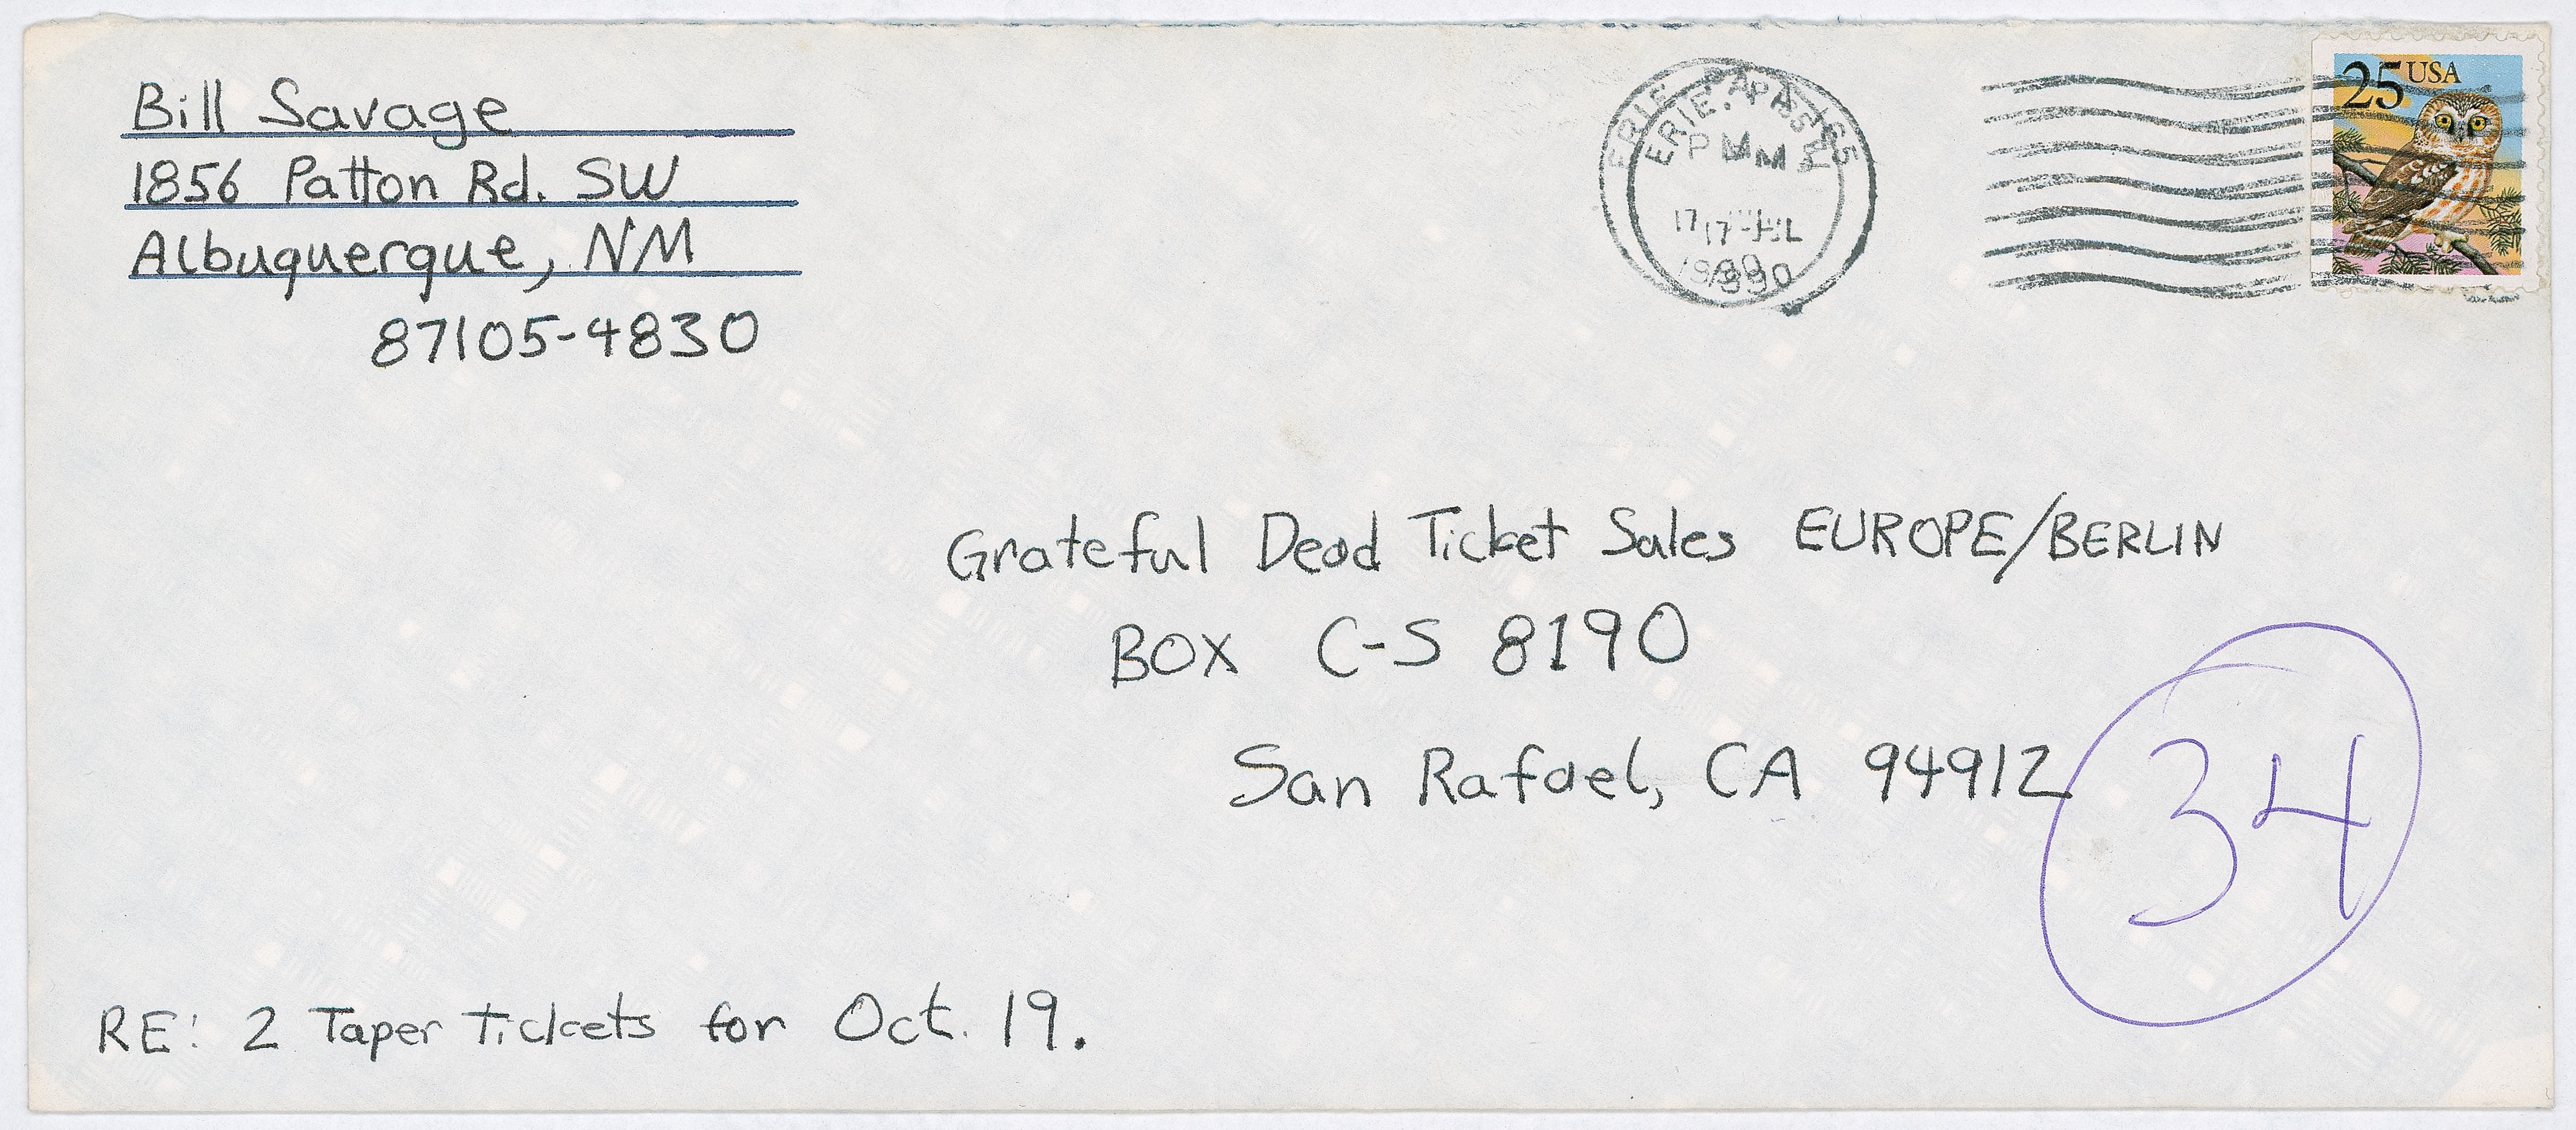 Bill Savage
1856 Patton Rd. SW
Albuquerque, NM
87105-4830
ERIE, PA
PM
17 JUL
1990
25 USA
Grateful Dead Ticket Sales EUROPE/BERLIN
BOX C-S 8190
San Rafael, CA 94912
34
RE: 2 Taper tickets for Oct. 19.